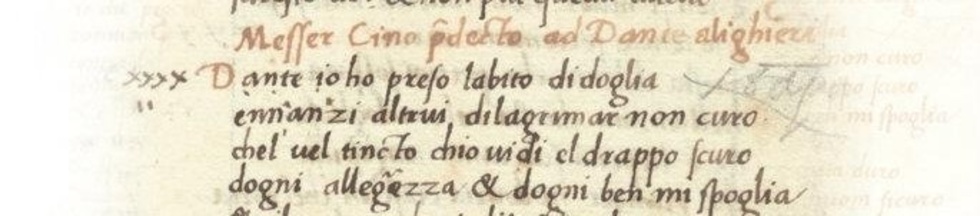 Messer Cino p̄decto ad Dante alighieri
xxxx Dante io ho preso labito di doglia
ennanzi altrui dilagrimar non curo
chel uel tincto chio uidi el drappo scuro
dogni allegrezza & dogni ben mi spoglia